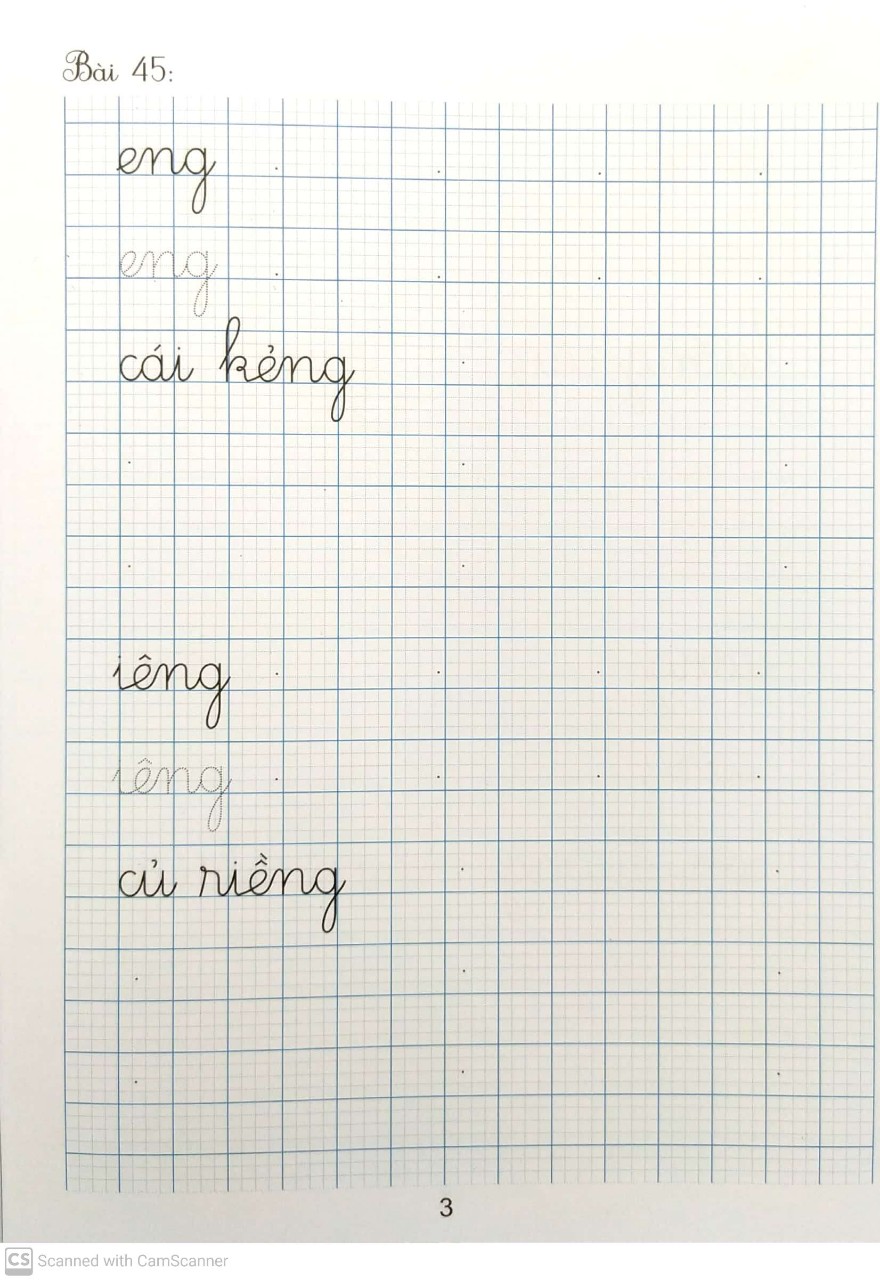 Bài 45:
eng
eng
cái kẻng
iêng
iêng
củ riềng
3
CS Scanned with CamScanner